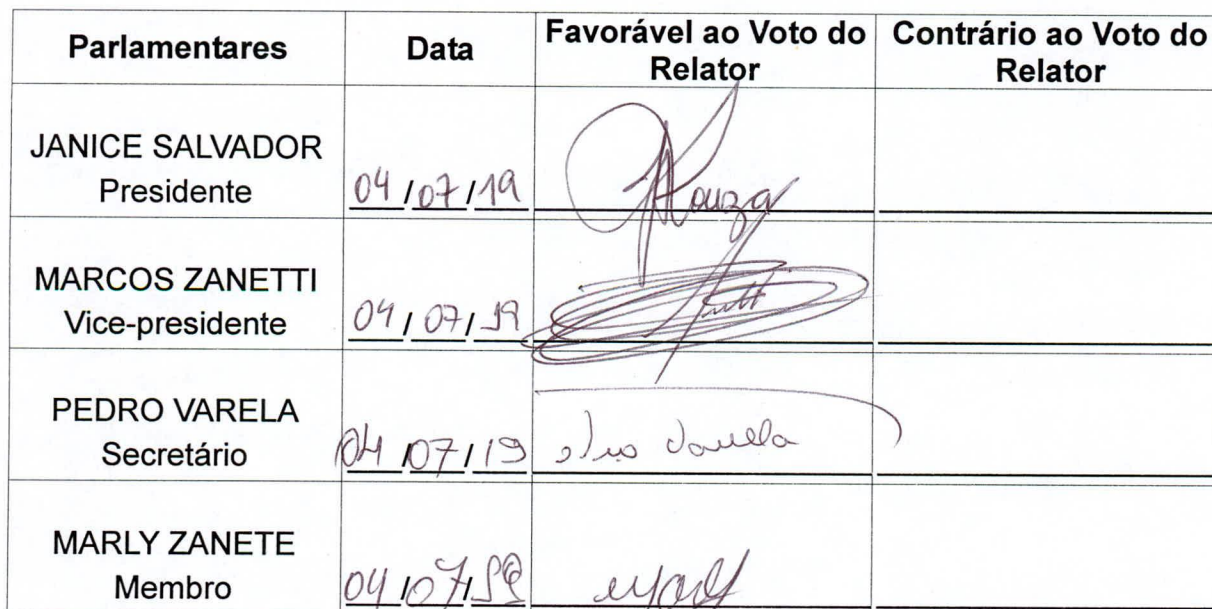 Parlamentares Data Favorável ao Voto do Relator Contrário ao Voto do Relator
JANICE SALVADOR
Presidente 04/07/19
MARCOS ZANETTI
Vice-presidente 04/07/19
PEDRO VARELA
Secretário 04/07/19 Varella
MARLY ZANETE
Membro 04/07/19